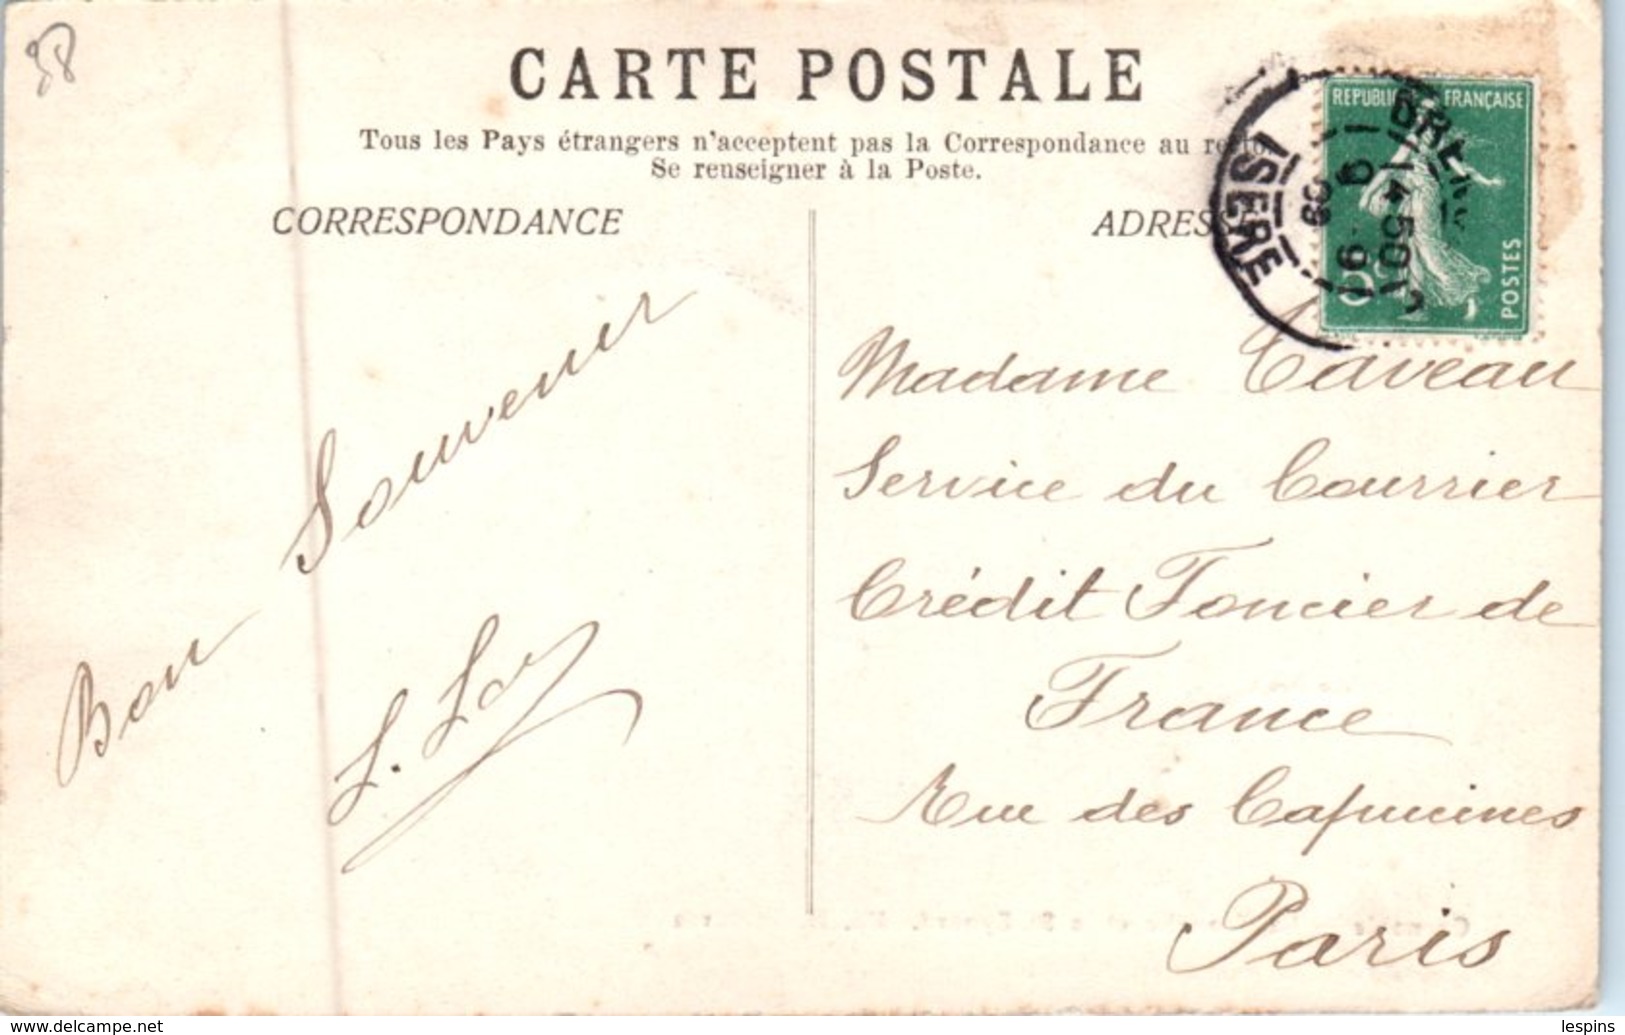 38
CARTE POSTALE
Tous les Pays étrangers n'acceptent pas la Correspondance au recto.
Se renseigner à la Poste.
CORRESPONDANCE
ADRES
REPUBLI FRANÇAISE
POSTES
5c
ISERE
14-50
9-9
08
Bon Souvenir
Madame Caveau
Service du Courrier
Crédit Foncier de
France
Rue des Capucines
Paris
lespins
www.delcampe.net